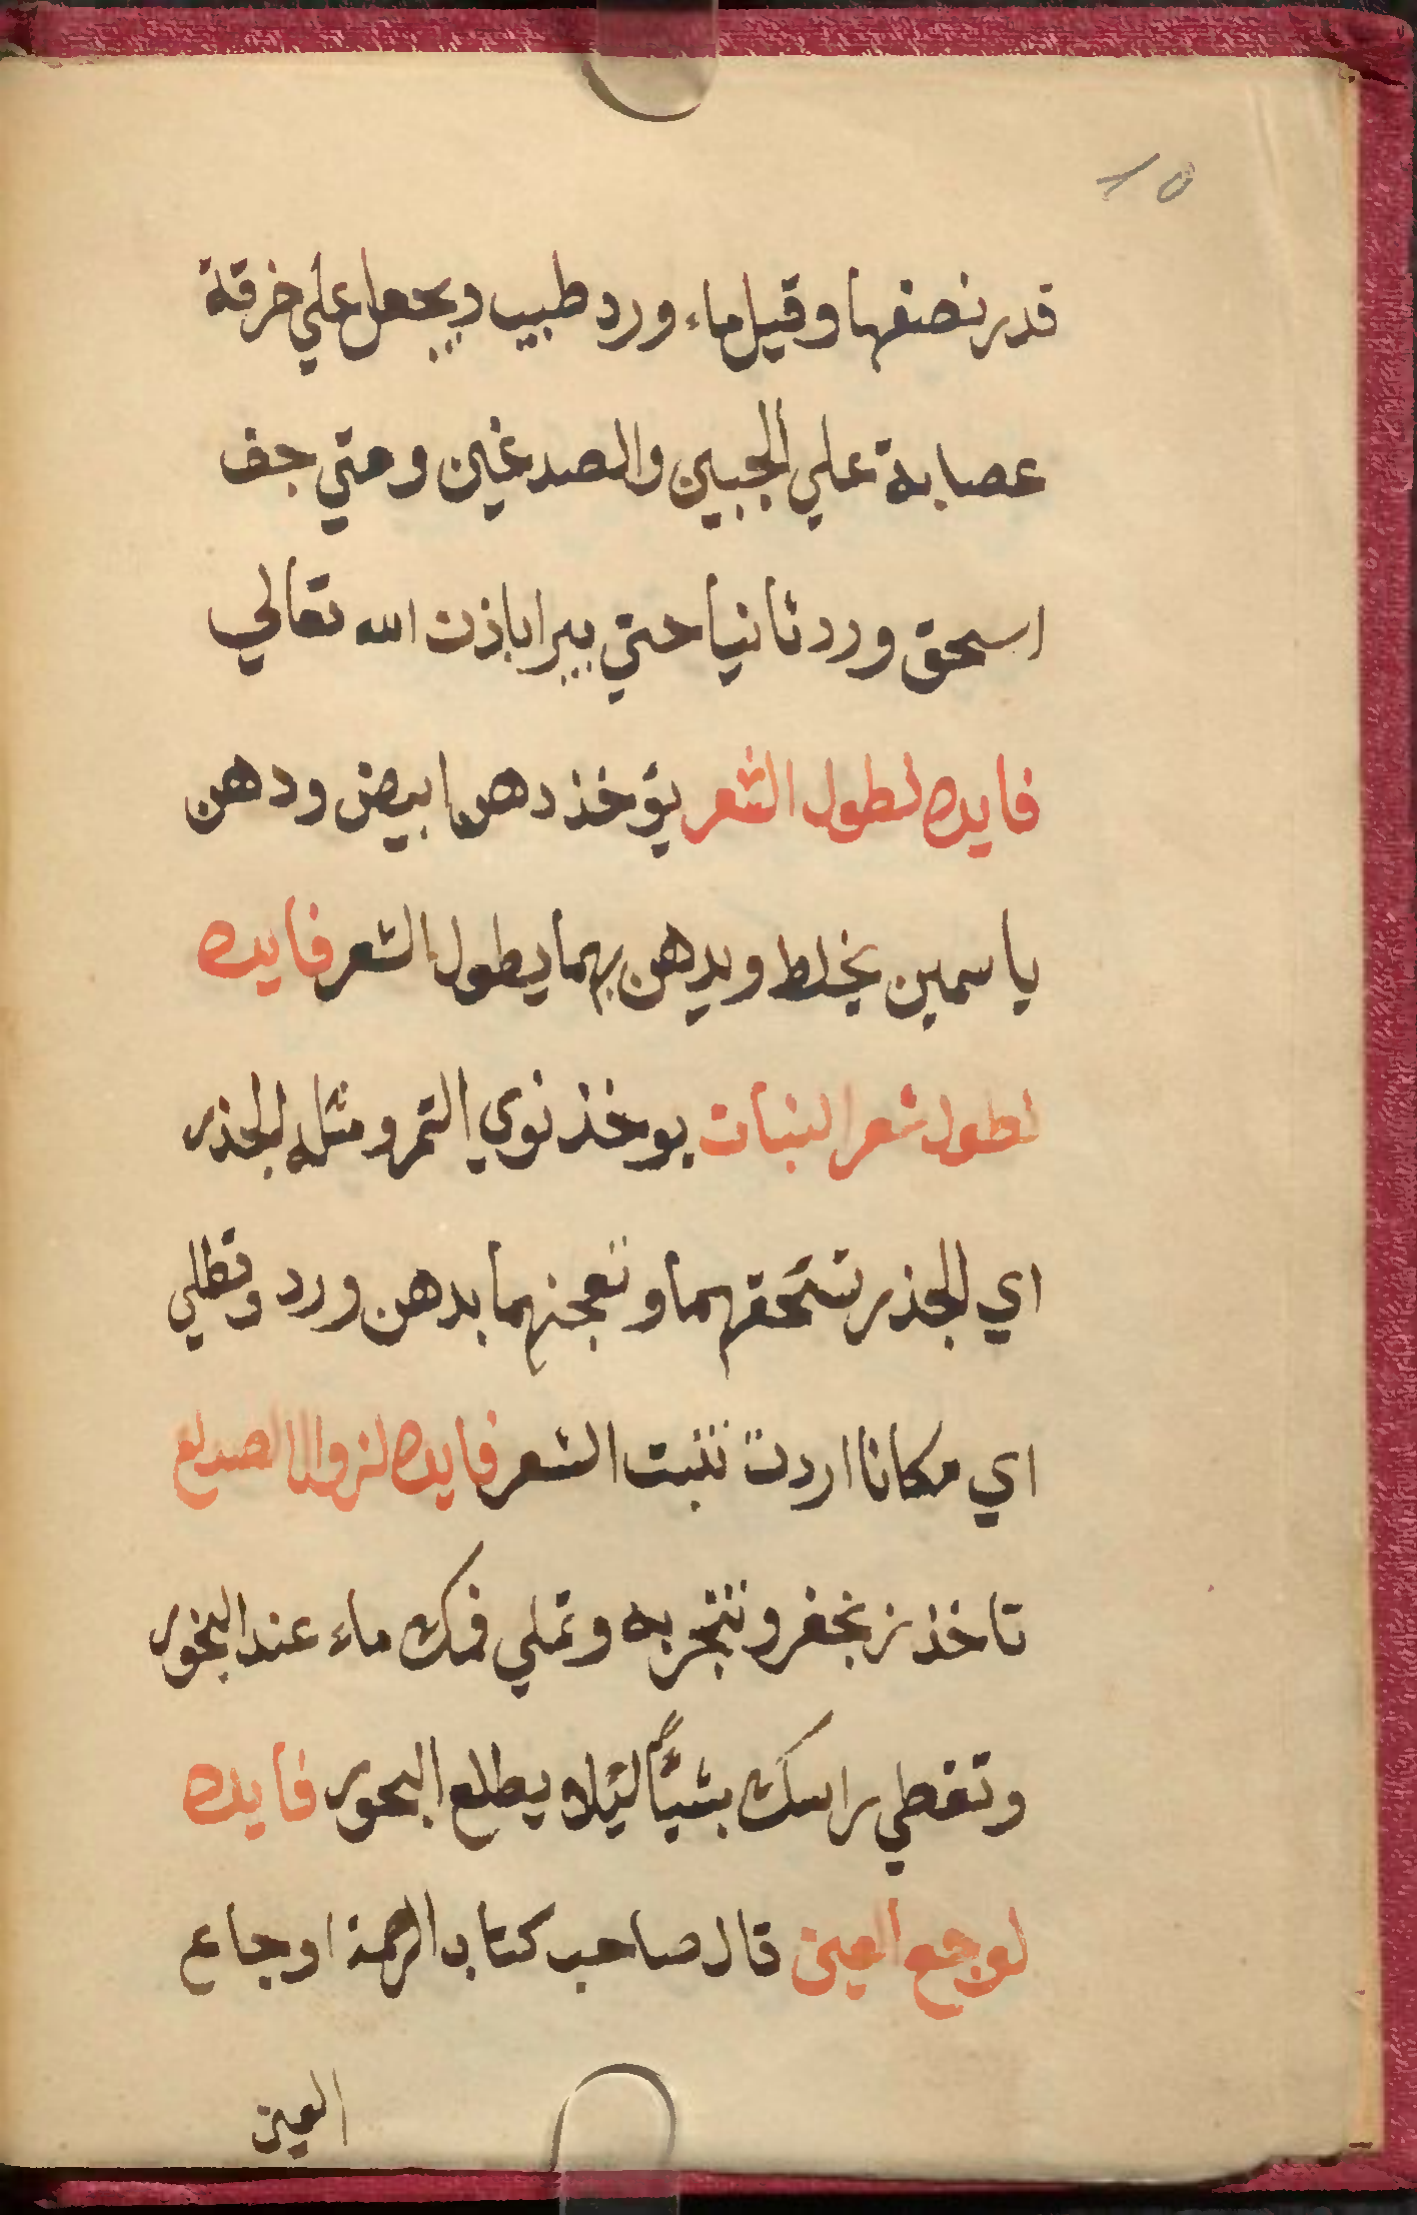 10
قدر نصفها وقيل ماء ورد طيب ويجعل علي خرقة
عصابة علي الجبين والصدغين ومتي جف
اسحق ورد ثانيا حتي يبرا باذن الله تعالي
فايده لطول الشعر يؤخذ دهن ابيض ودهن
ياسمين يخلط ويدهن بهما يطول الشعر فايده
لطول شعر البنات يوخذ نوي التمر ومثله الجذر
اي الجذر تسحقهما وتعجنهما بدهن ورد وتطلي
اي مكانا اردت تنبت الشعر فايده لزوال الصداع
تاخذ زنجفر وتتبخر به وتملي فمك ماء عند البخور
وتغطي راسك بشيئاً ليلا يطلع البحور فايده
لوجع العين قال صاحب كتاب الرحمة اوجاع
العين